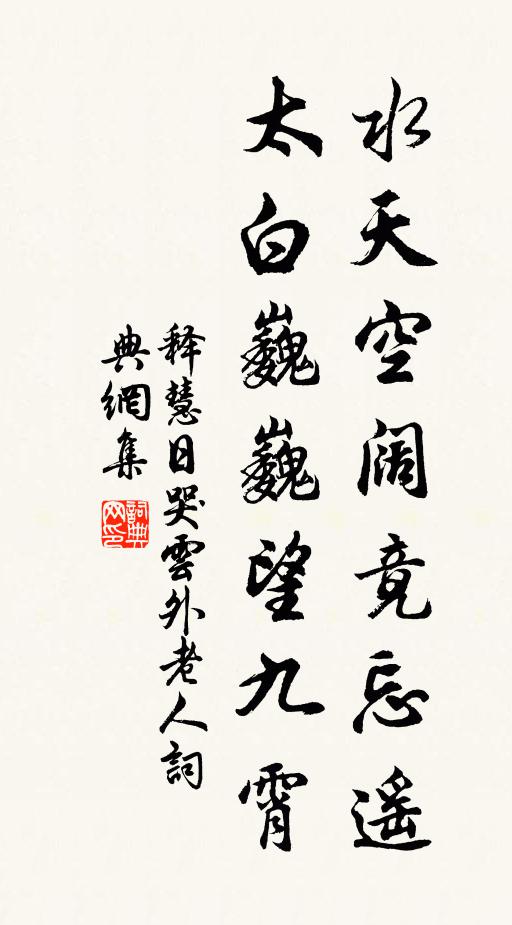 水天空阔竟忘遥
太白巍巍望九霄
释慧日哭雲外老人詞
典網集
詞典网印